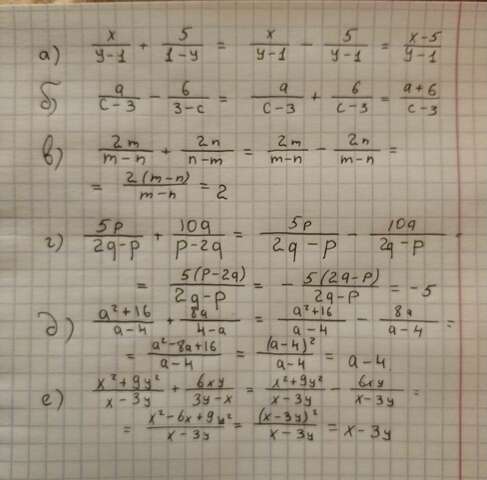 а) x/(y-1) + 5/(1-y) = x/(y-1) - 5/(y-1) = (x-5)/(y-1)
б) a/(c-3) - 6/(3-c) = a/(c-3) + 6/(c-3) = (a+6)/(c-3)
в) 2m/(m-n) + 2n/(n-m) = 2m/(m-n) - 2n/(m-n) =
= 2(m-n)/(m-n) = 2
г) 5p/(2q-p) + 10q/(p-2q) = 5p/(2q-p) - 10q/(2q-p) =
= 5(p-2q)/(2q-p) = - 5(2q-p)/(2q-p) = -5
д) (a²+16)/(a-4) + 8a/(4-a) = (a²+16)/(a-4) - 8a/(a-4) =
= (a²-8a+16)/(a-4) = (a-4)²/(a-4) = a-4
е) (x²+9y²)/(x-3y) + 6xy/(3y-x) = (x²+9y²)/(x-3y) - 6xy/(x-3y) =
= (x²-6x+9y²)/(x-3y) = (x-3y)²/(x-3y) = x-3y